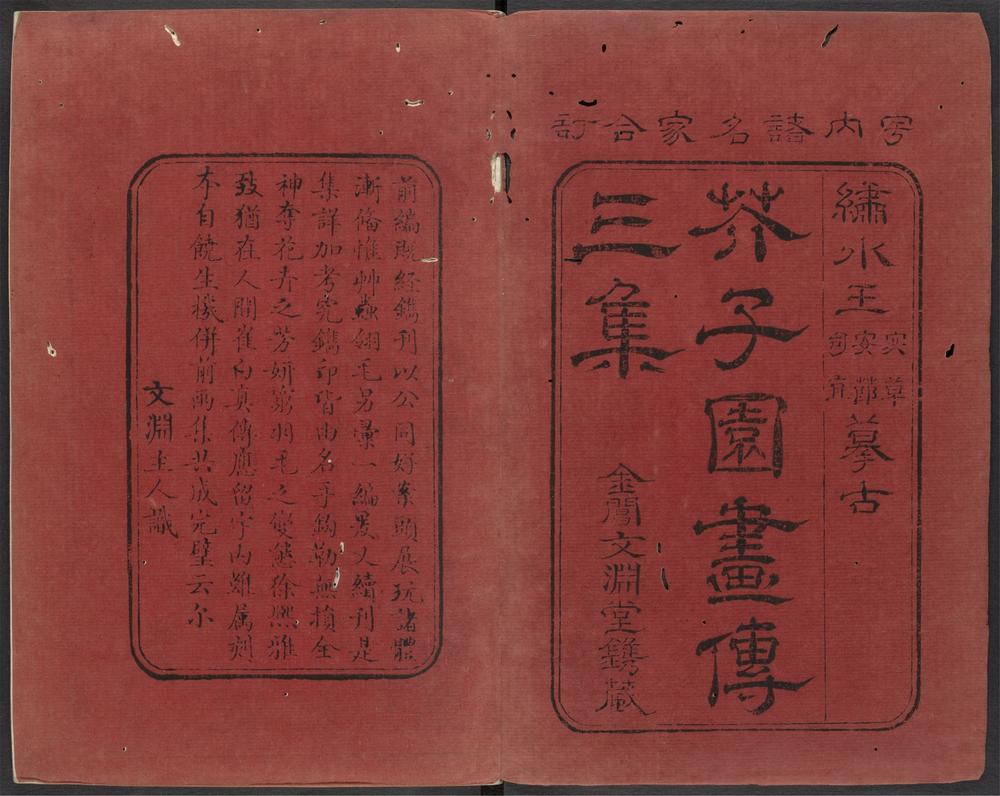 㝢内諸名家合訂
繡水王宓草安節司直摹古
芥子園畫傳
三集
金閶文淵堂鐫藏
前編既經鐫刊以公同好案頭展玩諸體
漸俻惟艸蟲翎毛另彙一編爰又續刊是
集詳加考究鐫印皆由名手鈎勒無損全
神奪花卉之芳妍窮羽毛之變態徐熙雅
致猶在人間崔白真傳應留宇内雖属剞
本自饒生機併前兩集共成完璧云尔
文淵主人識